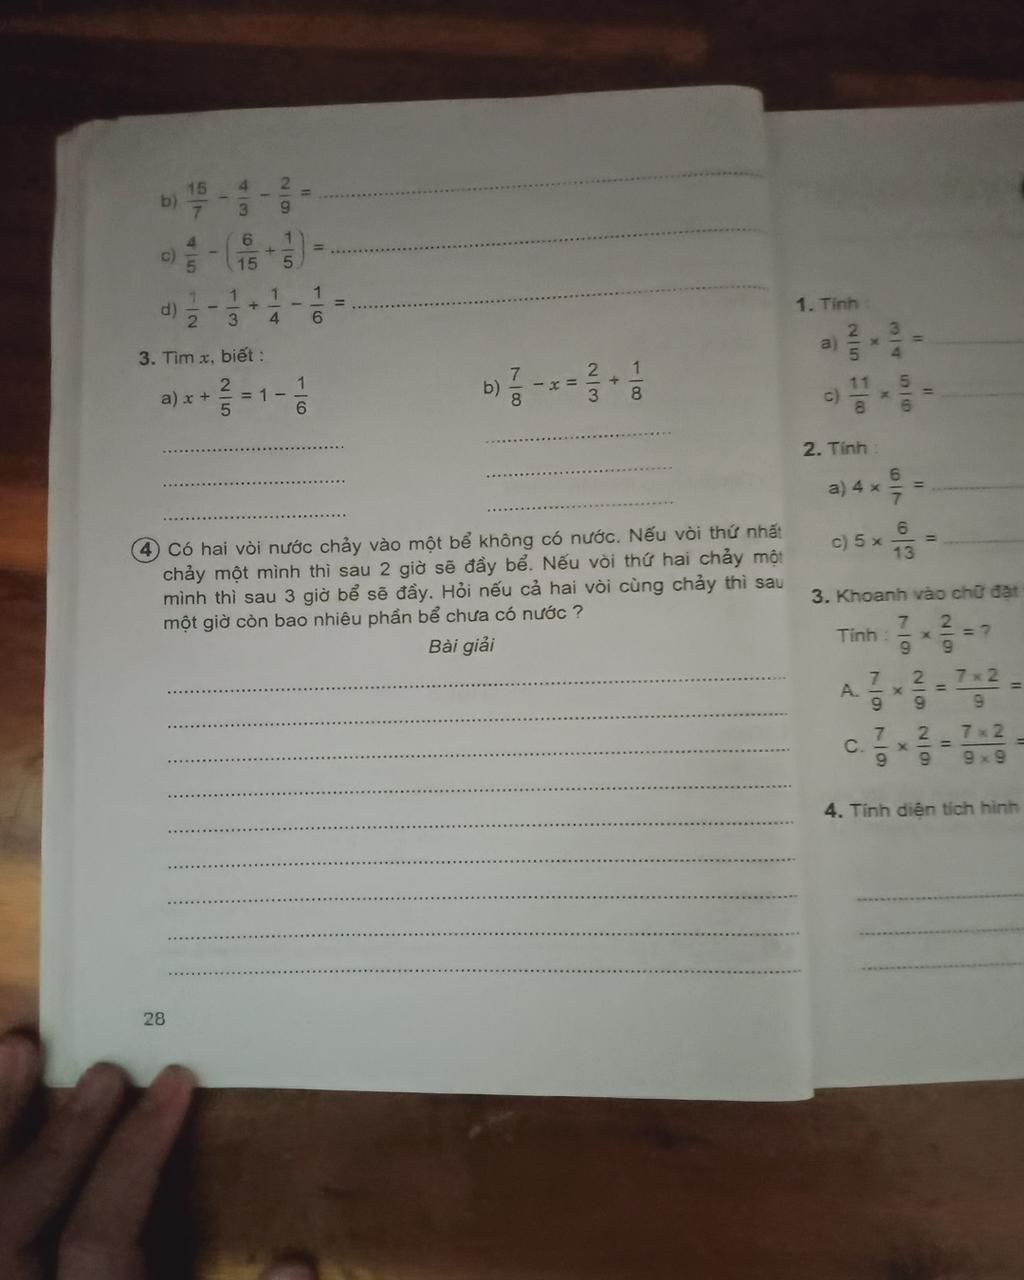 b) 15/7 - 4/3 - 2/9 = ........
c) 4/5 - (6/15 + 1/5) = ........
d) 1/2 - 1/3 + 1/4 - 1/6 = ........
3. Tìm x, biết :
a) x + 2/5 = 1 - 1/6
b) 7/8 - x = 2/3 + 1/8
4 Có hai vòi nước chảy vào một bể không có nước. Nếu vòi thứ nhất
chảy một mình thì sau 2 giờ sẽ đầy bể. Nếu vòi thứ hai chảy một
mình thì sau 3 giờ bể sẽ đầy. Hỏi nếu cả hai vòi cùng chảy thì sau
một giờ còn bao nhiêu phần bể chưa có nước ?
Bài giải
28
1. Tính :
a) 2/5 × 3/4 = ........
c) 11/8 × 5/6 = ........
2. Tính :
a) 4 × 6/7 = ........
c) 5 × 6/13 = ........
3. Khoanh vào chữ đặt
Tính : 7/9 × 2/9 = ?
A. 7/9 × 2/9 = 7 × 2/9 =
C. 7/9 × 2/9 = 7 × 2/9 × 9 =
4. Tính diện tích hình